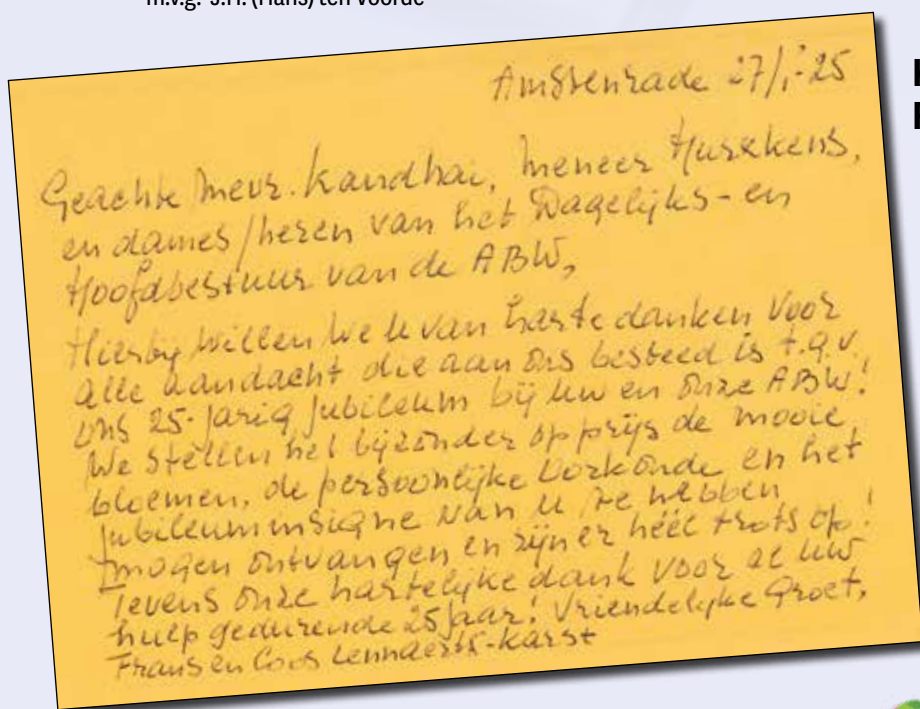 m.v.g. J.H. (Hans) ten Voorde
Amstenrade 27/1-25
Geachte mevr. Kandhai, meneer Hurxkens,
en dames/heren van het Dagelijks- en
Hoofdbestuur van de ABW,
Hierbij willen we u van harte danken voor
alle aandacht die aan ons besteed is t.g.v.
ons 25-jarig jubileum bij uw en onze ABW!
We stellen het bijzonder op prijs de mooie
bloemen, de persoonlijke oorkonde en het
jubileuminsigne van u te hebben
mogen ontvangen en zijn er héél trots op!
Tevens onze hartelijke dank voor al uw
hulp gedurende 25 jaar! Vriendelijke Groet,
Frans en Coos Lennaerts-Karst